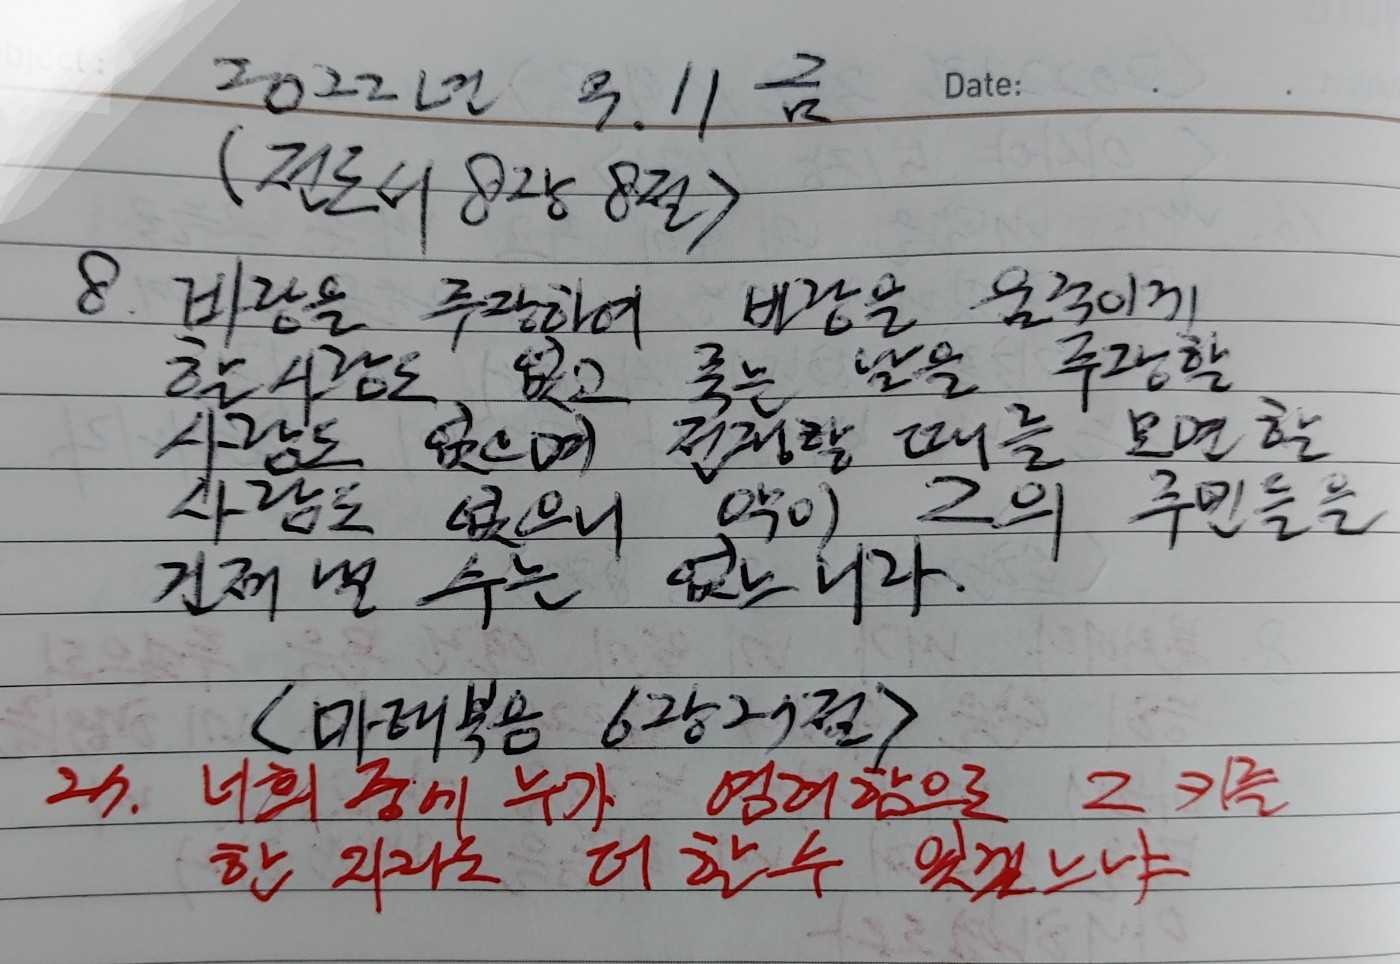 2022년 9.11 금 Date:
(전도서 8장 8절>
8. 바람을 주장하여 바람을 움직이게
할 사람도 없고 죽는 날을 주장할
사람도 없으며 전쟁할 때를 모면할
사람도 없으니 악이 그의 주민들을
건져낼 수는 없느니라.
<마태복음 6장27절>
27. 너희 중에 누가 염려함으로 그 키를
한 자라도 더 할 수 있겠느냐